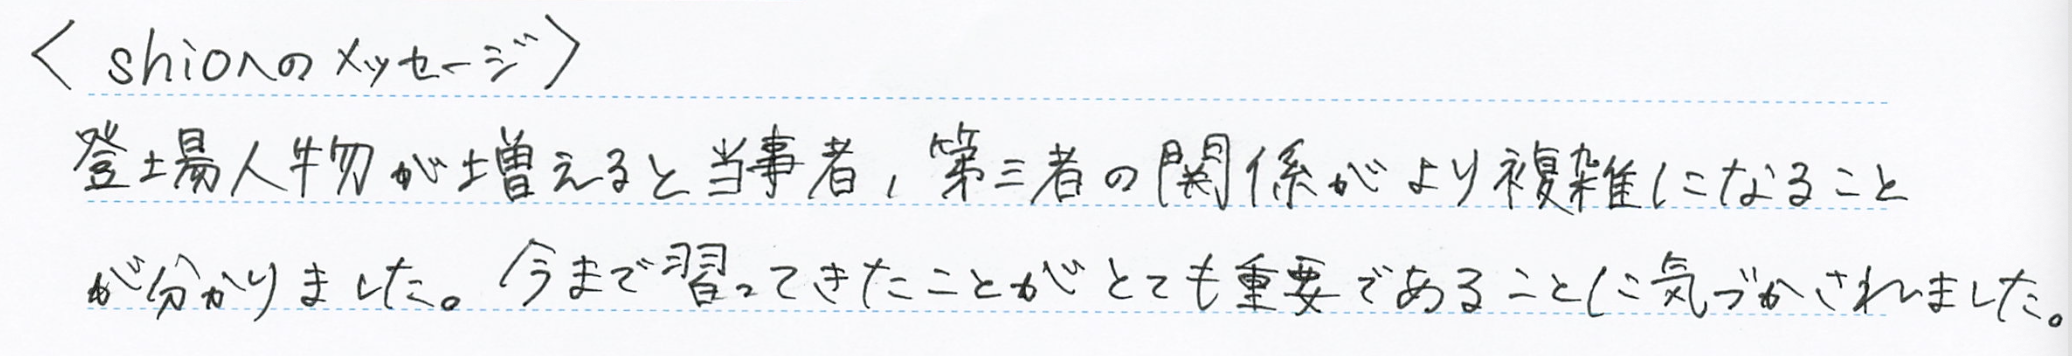 〈shioへのメッセージ〉
登場人物が増えると当事者,第三者の関係がより複雑になること
が分かりました。今まで習ってきたことがとても重要であることに気づかされました。